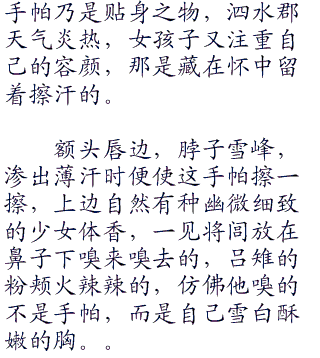 手帕乃是贴身之物，泗水郡
天气炎热，女孩子又注重自
己的容颜，那是藏在怀中留
着擦汗的。
额头唇边，脖子雪峰，
渗出薄汗时便使这手帕擦一
擦，上边自然有种幽微细致
的少女体香，一见将闾放在
鼻子下嗅来嗅去的，吕雉的
粉颊火辣辣的，仿佛他嗅的
不是手帕，而是自己雪白酥
嫩的胸。。